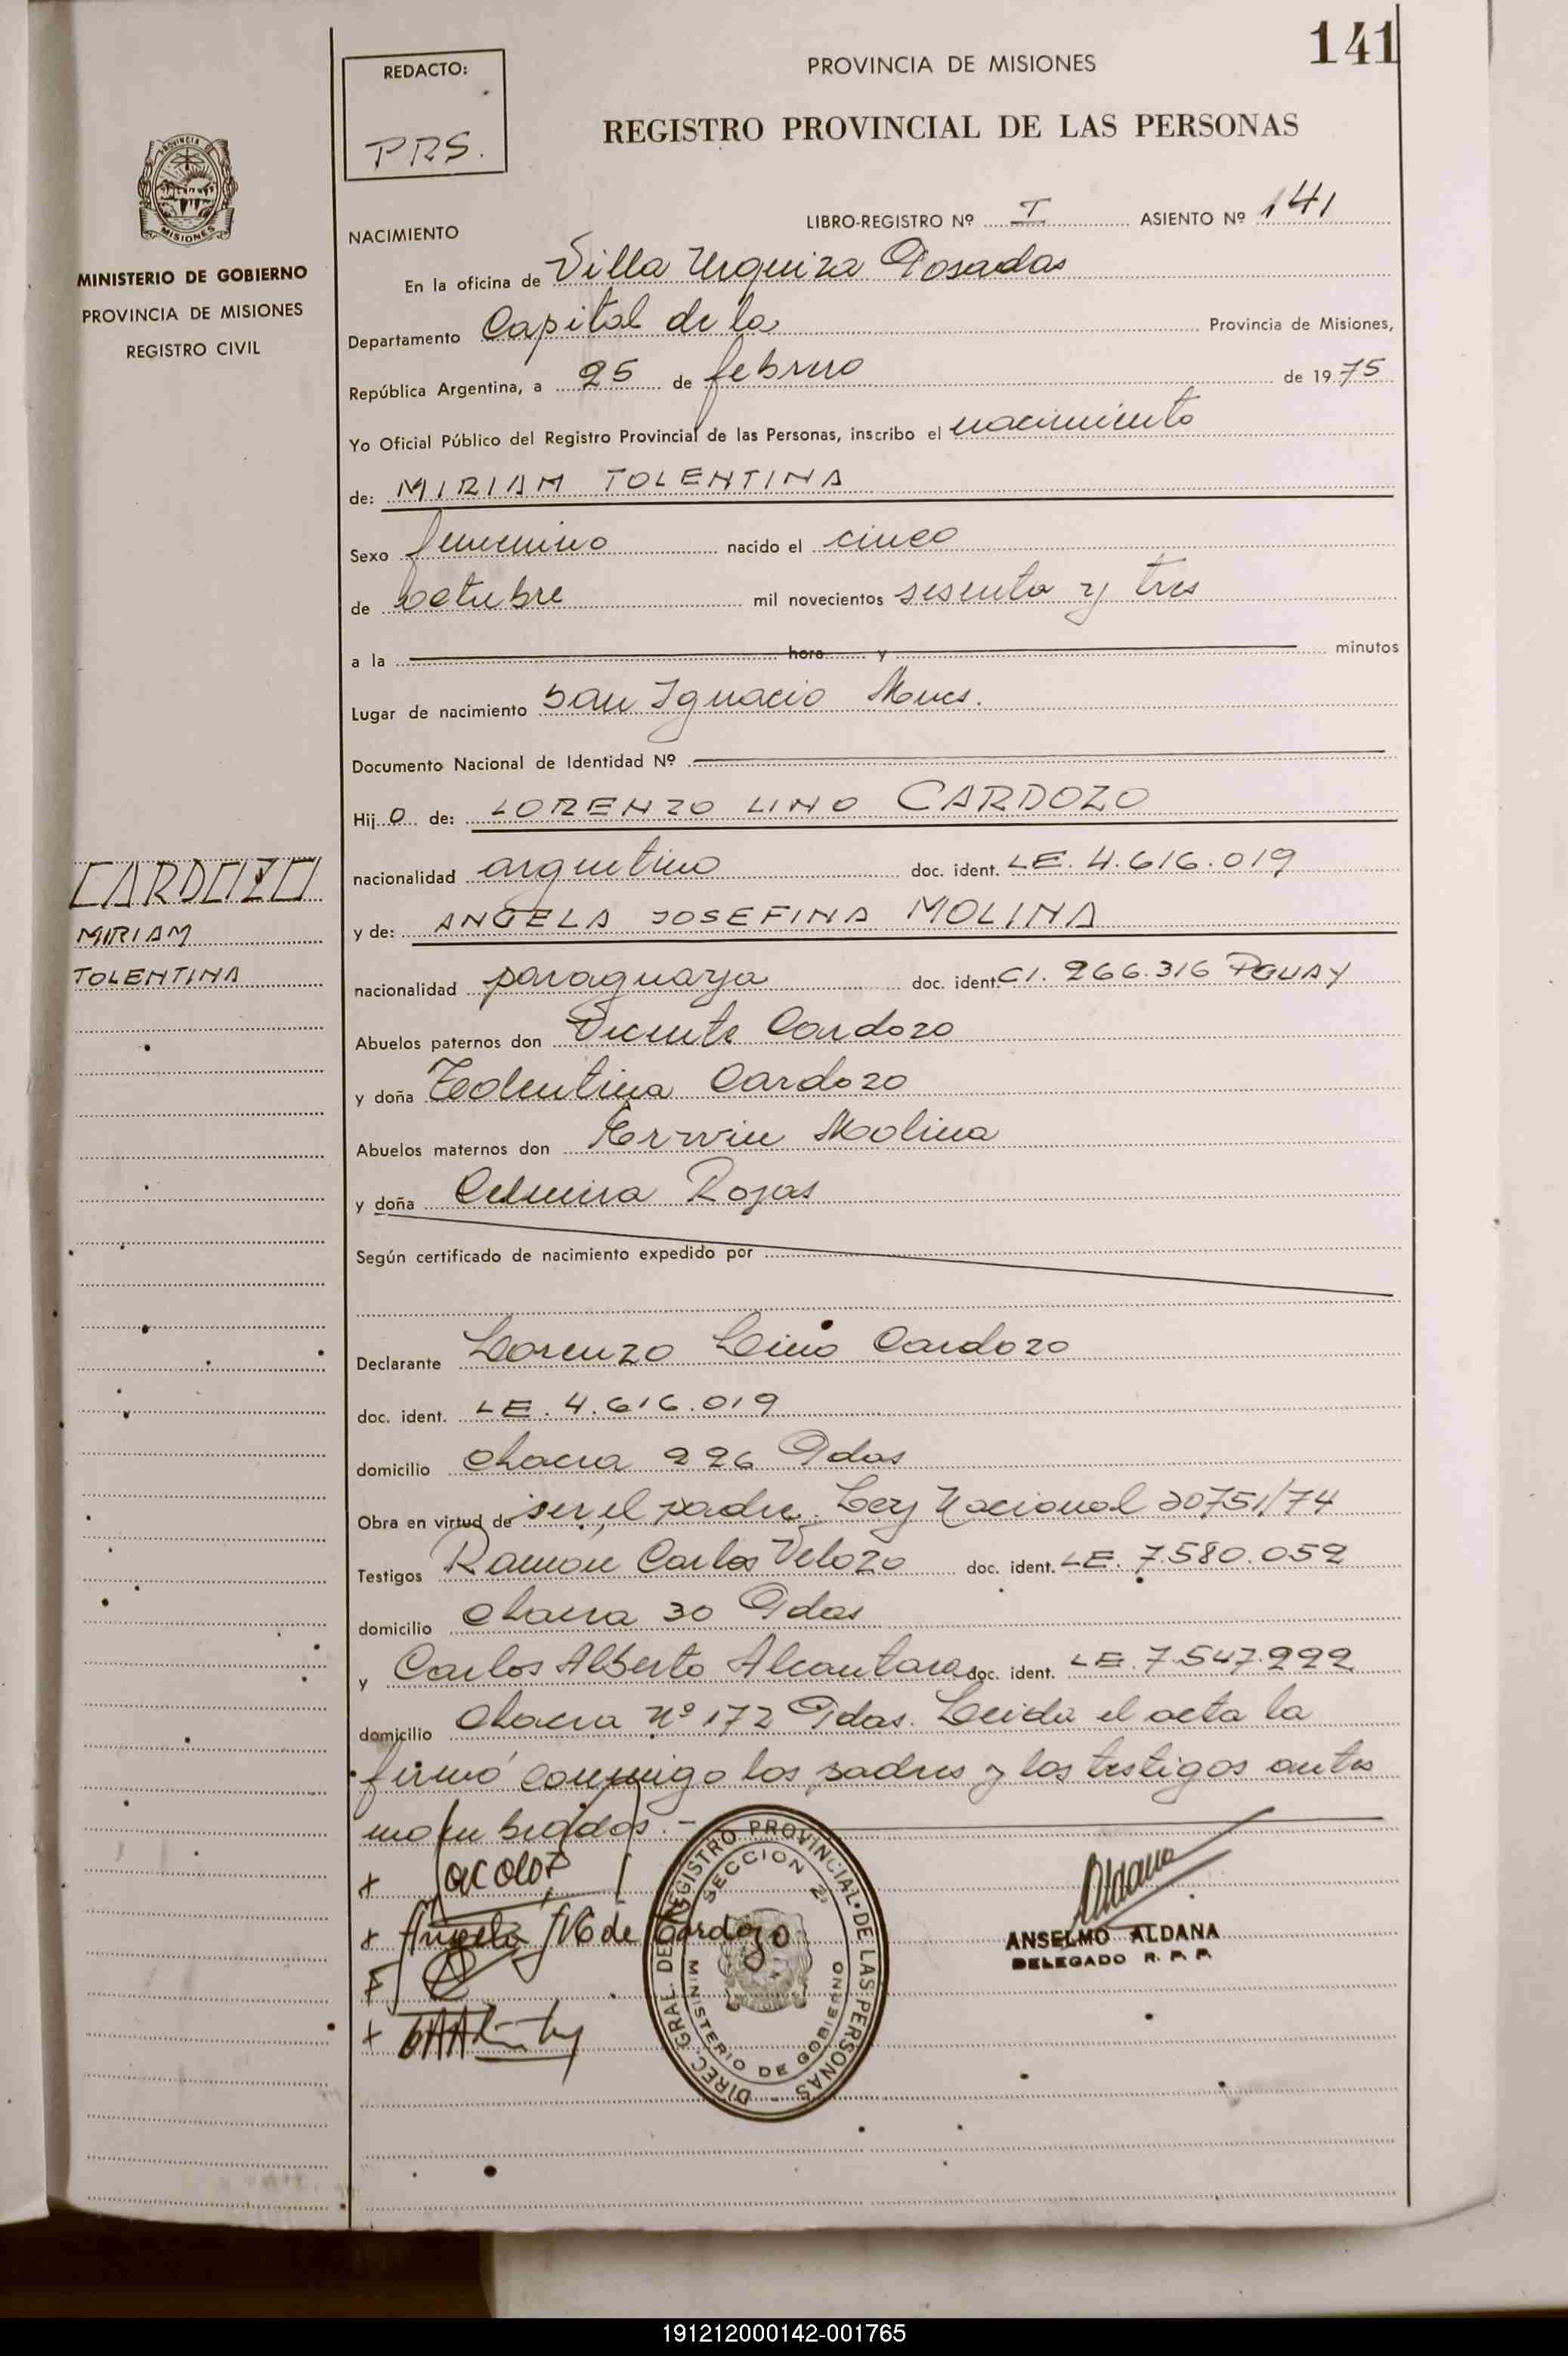 141
REDACTO:
PRS.
PROVINCIA DE MISIONES
REGISTRO PROVINCIAL DE LAS PERSONAS
PROVINCIA DE MISIONES
MINISTERIO DE GOBIERNO
PROVINCIA DE MISIONES
REGISTRO CIVIL
LIBRO-REGISTRO Nº I ASIENTO Nº 141
NACIMIENTO
En la oficina de Villa Urquiza Posadas
Departamento Capital de la Provincia de Misiones,
República Argentina, a 25 de febrero de 1975
Yo Oficial Público del Registro Provincial de las Personas, inscribo el nacimiento
de: MIRIAM TOLENTINA
Sexo femenino nacido el cinco
de octubre mil novecientos sesenta y tres
a la hora y minutos
Lugar de nacimiento San Ignacio Mnes.
Documento Nacional de Identidad Nº
Hij o de: LORENZO LINO CARDOZO
nacionalidad argentino doc. ident. LE. 4.616.019
y de: ANGELA JOSEFINA MOLINA
nacionalidad paraguaya doc. ident. CI. 266.316 PGUAY
Abuelos paternos don Vicente Cardozo
y doña Tolentina Cardozo
Abuelos maternos don Erwin Molina
y doña Rojas
Según certificado de nacimiento expedido por
Declarante Lorenzo Lino Cardozo
doc. ident. LE. 4.616.019
domicilio chacra 226 Pdas
Obra en virtud de ser el padre. Ley Nacional 20751/74
Testigos Ramón Carlos Velozo doc. ident. LE. 7.580.052
domicilio chacra 30 Pdas
y Carlos Alberto Alcantara doc. ident. LE. 7.547.222
domicilio chacra Nº 172 Pdas. Leida el acta la
firmó conmigo los padres y los testigos antes
mombrados.-
Angela M de Cardozo
DIREC. GRAL. DEL REGISTRO PROVINCIAL DE LAS PERSONAS
SECCION 2ª
MINISTERIO DE GOBIERNO
Aldana
ANSELMO ALDANA
DELEGADO R. P. P.
CARDOZO
MIRIAM
TOLENTINA
191212000142-001765